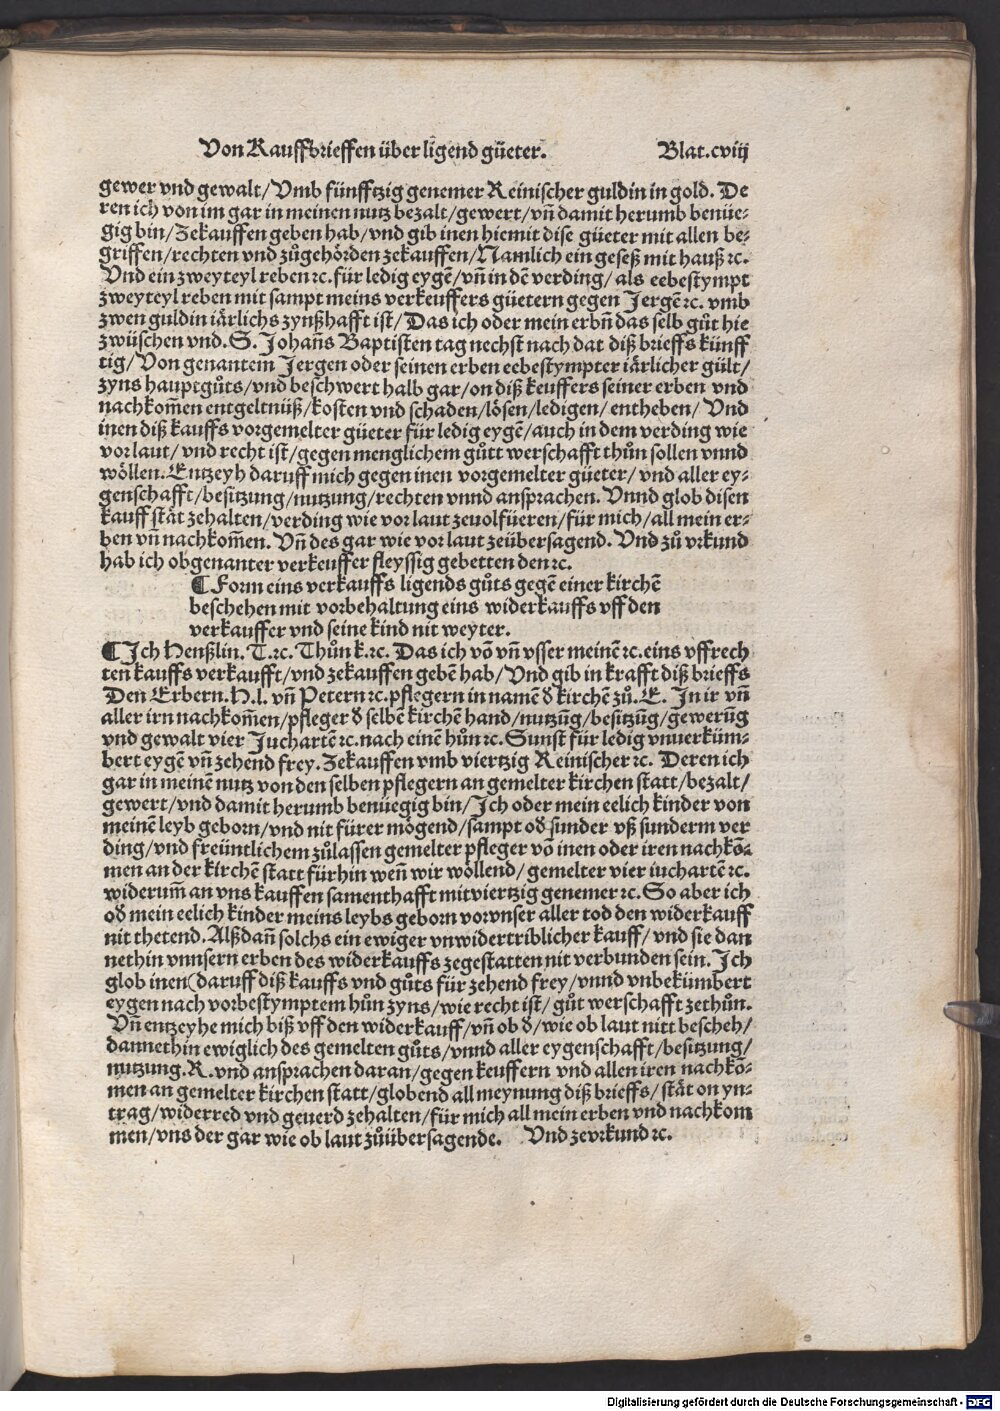 Von Kauffbrieffen über ligend güeter. Blat.cviij
gewer vnd gewalt/Vmb fünfftzig genemer Reinischer guldin in gold. De
ren ich von im gar in meinen nutz bezalt/gewert/vn̄ damit herumb benüe⸗
gig bin/Zekauffen geben hab/vnd gib inen hiemit dise güeter mit allen be⸗
griffen/rechten vnd zůgehörden zekauffen/Namlich ein geseß mit hauß ꝛc.
Vnd ein zweyteyl reben ꝛc. für ledig eygē/vn̄ in dē verding/ als eebestympt
zweyteyl reben mit sampt meins verkeuffers güetern gegen Jergē ꝛc. vmb
zwen guldin iärlichs zynßhafft ist/Das ich oder mein erbn̄ das selb gůt hie
zwüschen vnd. S. Johan̄s Baptisten tag nechst nach dat diß brieffs künff
tig/Von genantem Jergen oder seinen erben eebestympter iärlicher gült/
zyns hauptgůts/vnd beschwert halb gar/on diß keuffers seiner erben vnd
nachkom̄en entgeltnüß/kosten vnd schaden/lösen/ledigen/entheben/ Vnd
inen diß kauffs vorgemelter güeter für ledig eygē/auch in dem verding wie
vor laut/vnd recht ist/gegen menglichem gůtt werschafft thůn sollen vnnd
wöllen. Entzeyh daruff mich gegen inen vorgemelter güeter/vnd aller ey⸗
genschafft/besitzung/nutzung/rechten vnnd ansprachen. Vnnd glob disen
kauff stät zehalten/verding wie vor laut zeuolfüeren/für mich/all mein er⸗
ben vn̄ nachkom̄en. Vn̄ des gar wie vor laut zeübersagend. Vnd zů vrkund
hab ich obgenanter verkeuffer fleyssig gebetten den ꝛc.
¶ Form eins verkauffs ligends gůts gegē einer kirchē
beschehen mit vorbehaltung eins widerkauffs vff den
verkauffer vnd seine kind nit weyter.
¶ Ich Henßlin. T. ꝛc. Thůn k. ꝛc. Das ich vō vn̄ vsser meinē ꝛc. eins vffrech
ten kauffs verkaufft/vnd zekauffen gebē hab/Vnd gib in krafft diß brieffs
Den Erbern. H. l. vn̄ Petern ꝛc. pflegern in namē d̄ kirchē zů. E. In ir vn̄
aller irn nachkom̄en/pfleger d̄ selbē kirchē hand/nutzūg/besitzūg/gewerūg
vnd gewalt vier Juchartē ꝛc. nach einē hůn ꝛc. Sunst für ledig vnuerküm⸗
bert eygē vn̄ zehend frey. Zekauffen vmb viertzig Reinischer ꝛc. Deren ich
gar in meinē nutz von den selben pflegern an gemelter kirchen statt/bezalt/
gewert/vnd damit herumb benüegig bin/Ich oder mein eelich kinder von
meinē leyb geborn/vnd nit fürer mögend/sampt od̄ sunder vß sunderm ver
ding/vnd freüntlichem zůlassen gemelter pfleger vō inen oder iren nachkō⸗
men an der kirchē statt fürhin wen̄ wir wöllend/gemelter vier iuchartē ꝛc.
widerum̄ an vns kauffen samenthafft mit viertzig genemer ꝛc. So aber ich
od̄ mein eelich kinder meins leybs geborn vor vnser aller tod den widerkauff
nit thetend. Alßdan̄ solchs ein ewiger vnwidertriblicher kauff/vnd sie dan
nethin vnnsern erben des widerkauffs zegestatten nit verbunden sein. Ich
glob inen (daruff diß kauffs vnd gůts für zehend frey/vnnd vnbekümbert
eygen nach vorbestymptem hůn zyns/wie recht ist/gůt werschafft zethůn.
Vn̄ entzeyhe mich biß vff den widerkauff/vn̄ ob d̄/wie ob laut nitt bescheh/
dannethin ewiglich des gemelten gůts/vnnd aller eygenschafft/besitzung/
nutzung. R. vnd ansprachen daran/gegen keuffern vnd allen iren nachkō⸗
men an gemelter kirchen statt/globend all meynung diß brieffs/stät on yn⸗
trag/widerred vnd geuerd zehalten/für mich all mein erben vnd nachkom
men/vns der gar wie ob laut zůübersagende. Vnd zevrkund ꝛc.
Digitalisierung gefördert durch die Deutsche Forschungsgemeinschaft - DFG